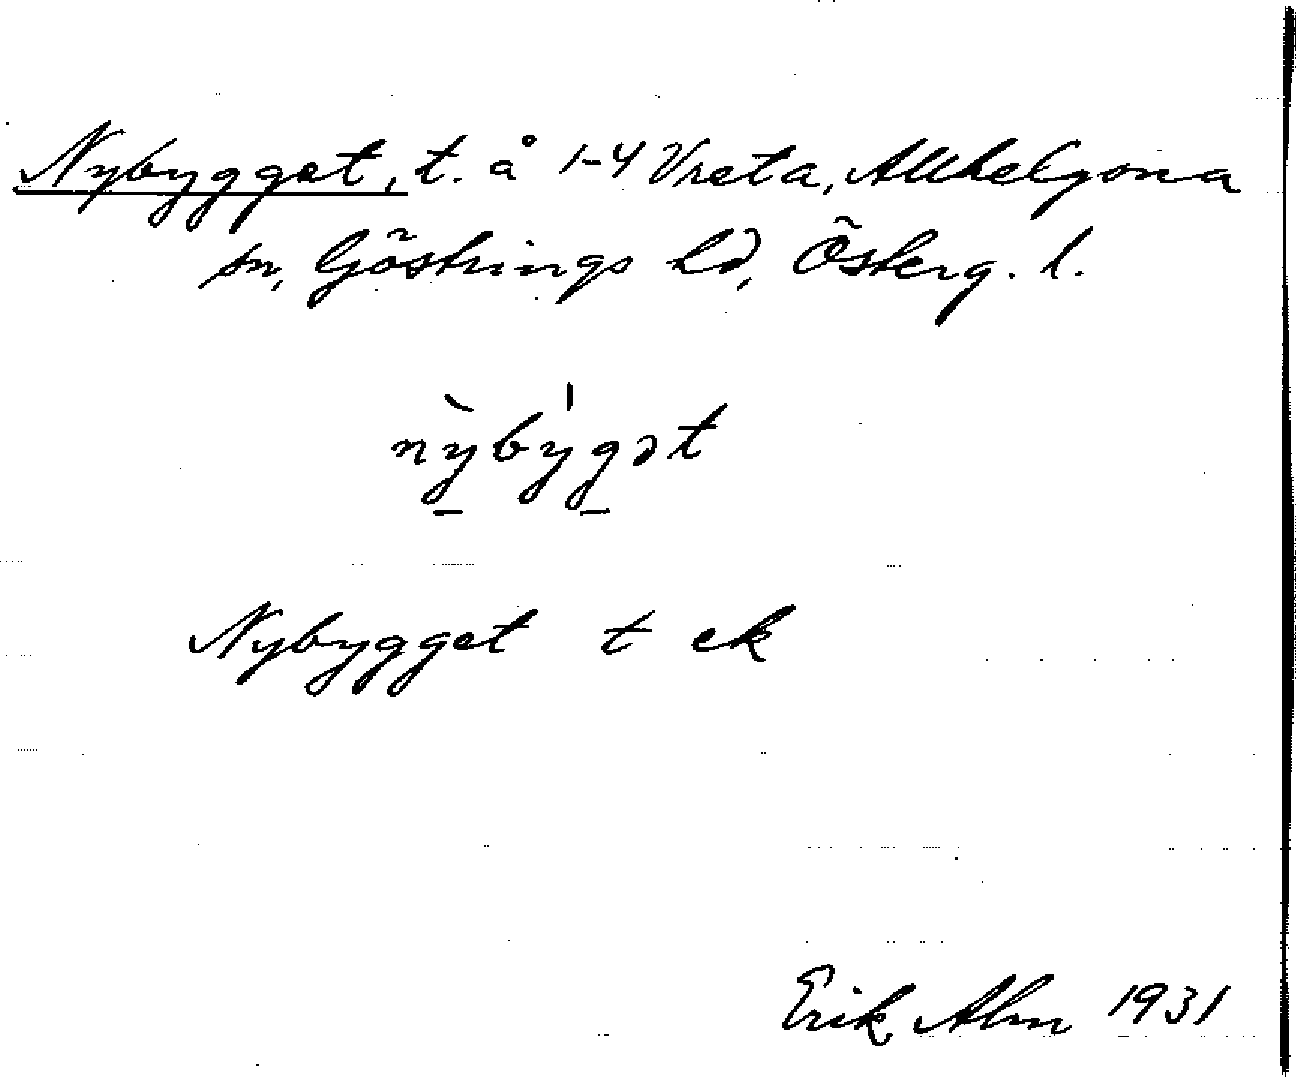 Nybygget, t. å 1-4 Vreta, Allhelgona
sn, Göstrings hd, Österg. l.
nỳby̍gət
Nybygget t ek
Erik Alm 1931